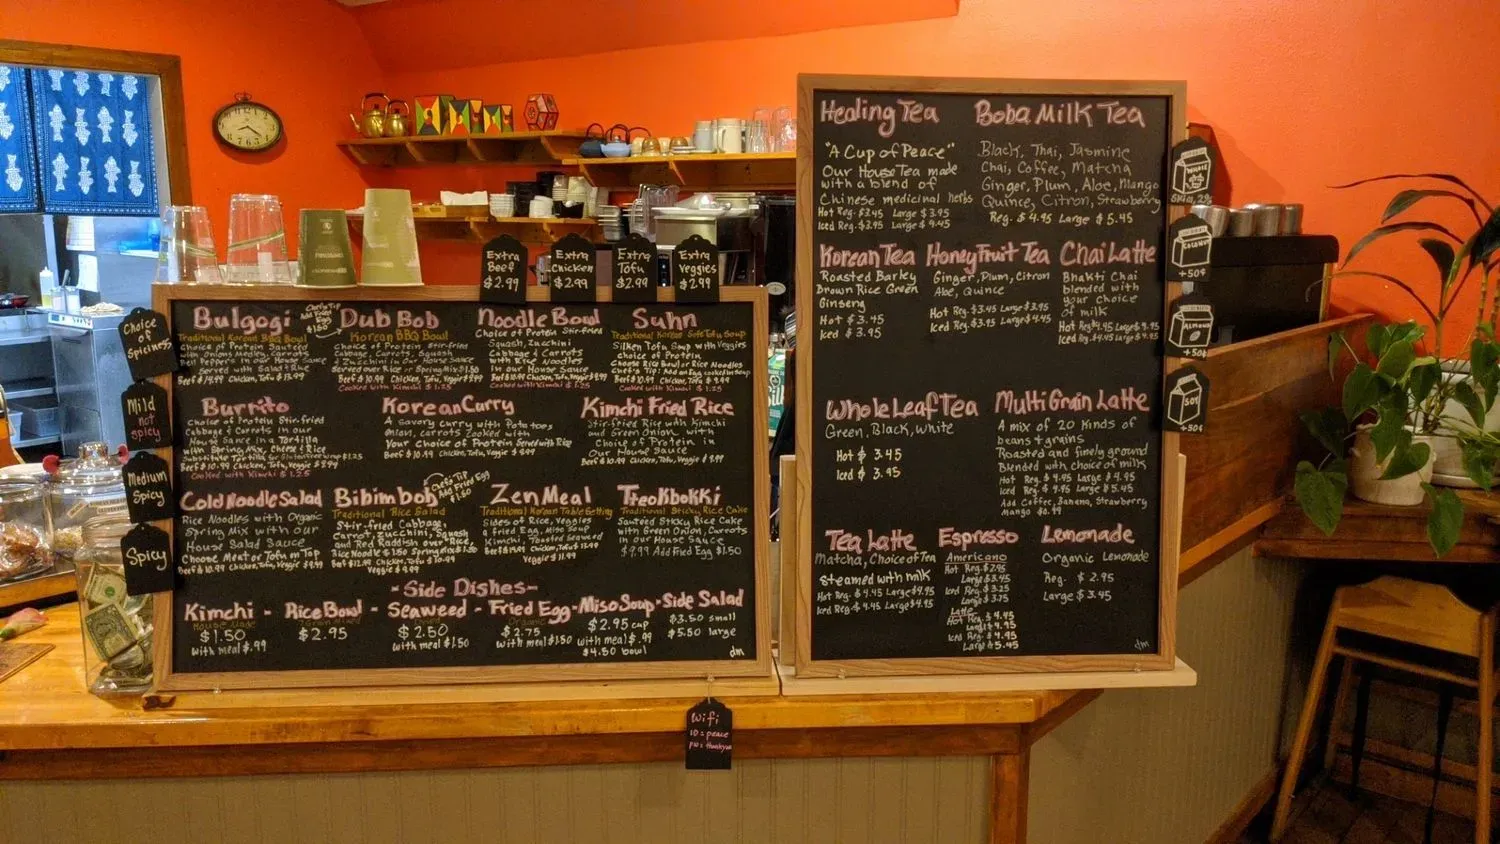 Extra Beef $2.99
Extra Chicken $2.99
Extra Tofu $2.99
Extra Veggies $2.99
Choice of Spiciness
Mild not spicy
Medium Spicy
Spicy
Bulgogi
Traditional Korean BBQ Bowl
Choice of Protein Sauteed
with Onions, Medley, Carrots
Bell Peppers in our House Sauce
Served with Salad & Rice
Chef's Tip
Add Fried
Egg
$1.50
Dub Bob
Korean BBQ Bowl
Choice of Protein stir-fried
Cabbage, Carrots, Squash
& Zucchini in our House Sauce
Served over Rice or Spring Mix $1.50
Beef $10.99 Chicken, Tofu, Veggie $9.99
Cooked with Kimchi $1.25
Noodle Bowl
Choice of Protein Stir-fried
Squash, Zucchini
Cabbage & Carrots
with Rice Noodles
in our House Sauce
Beef $10.99 Chicken, Tofu, Veggie $9.99
Cooked with Kimchi $1.25
Suhn
Traditional Korean Soft Tofu Soup
Silken Tofu Soup with Veggies
choice of Protein
Side Rice Bowl or Rice Noodles
Chef's Tip: Add an Egg cooked in Soup
Beef $10.99 Chicken, Tofu $9.99
Cooked with Kimchi $1.25
Burrito
Choice of Protein Stir-fried
Cabbage & Carrots in our
House Sauce in a Tortilla
with Spring Mix, Cheese & Rice
Substitute Tortilla for Gluten Free wrap $1.25
Beef $10.99 Chicken, Tofu, Veggie $9.99
Cooked with Kimchi $1.25
Korean Curry
A savory curry with Potatoes
onion, carrots cooked with
Your choice of Protein Served with Rice
Beef $10.99 Chicken, Tofu, Veggie $9.99
Kimchi Fried Rice
Stir-fried Rice with Kimchi
and Green Onion, with
Choice of Protein in
Our House Sauce
Beef $10.99 Chicken, Tofu, Veggie $9.99
Cold Noodle Salad
Rice Noodles with Organic
Spring Mix with our
House Salad Sauce
Choose Meat or Tofu on Top
Beef $10.99 Chicken, Tofu, Veggie $9.99
Bibimbob
Chef's Tip
Add Fried Egg
$1.50
Traditional Rice Salad
Stir-fried Cabbage,
Carrot, Zucchini, Squash
and Red Raddish over Rice,
Rice Noodle $1.50 Spring Mix $1.50
Beef $12.99 Chicken, Tofu $10.99
Veggie $9.99
Zen Meal
Traditional Korean Table Setting
Sides of Rice, Veggies
a Fried Egg, Miso Soup
Kimchi, Toasted Seaweed
Veggie $11.99
Tteokbokki
Traditional Sticky Rice Cake
Sauteed Sticky Rice Cake
with Green Onion, Carrots
in our House Sauce
$9.99 Add Fried Egg $1.50
- Side Dishes -
Kimchi - Rice Bowl - Seaweed - Fried Egg - Miso Soup - Side Salad
House Made
$1.50
with meal $.99
$2.95
$2.50
with meal $1.50
Organic
$2.75
with meal $1.50
$2.95 cup
with meal $.99
$4.50 bowl
$3.50 small
$5.50 large
dm
Wifi
ID = peace
pw = thankyou
Healing Tea
"A Cup of Peace"
Our House Tea made
with a blend of
Chinese medicinal herbs
Hot Reg. $3.45 Large $3.95
Iced Reg. $3.95 Large $4.45
Boba Milk Tea
Black, Thai, Jasmine
Chai, Coffee, Matcha
Ginger, Plum, Aloe, Mango
Quince, Citron, Strawberry
Reg. $4.95 Large $5.45
Korean Tea
Roasted Barley
Brown Rice Green
Ginseng
Hot $3.45
Iced $3.95
Honey Fruit Tea
Ginger, Plum, Citron
Aloe, Quince
Hot Reg. $3.45 Large $3.95
Iced Reg. $3.95 Large $4.45
Chai Latte
Bhakti Chai
blended with
your choice
of milk
Hot Reg $4.45 Large $4.95
Iced Reg. $4.95 Large $5.45
Whole Leaf Tea
Green, Black, White
Hot $3.45
Iced $3.95
Multi Grain Latte
A mix of 20 Kinds of
beans + grains
Roasted and finely ground
Blended with choice of milks
Hot Reg. $4.45 Large $4.95
Iced Reg. $4.95 Large $5.45
Add Coffee, Banana, Strawberry
Mango $0.99
Tea Latte
Matcha, Choice of Tea
Steamed with milk
Hot Reg. $4.45 Large $4.95
Espresso
Americano
Hot Reg. $2.95
Large $3.45
Iced Reg. $3.25
Large $3.75
Latte
Hot Reg. $4.45
Large $4.95
Iced Reg. $4.95
Large $5.45
Lemonade
Organic Lemonade
Reg. $2.95
Large $3.45
dm
WHOLE
COCONUT
+50¢
ALMOND
+50¢
SOY
+50¢